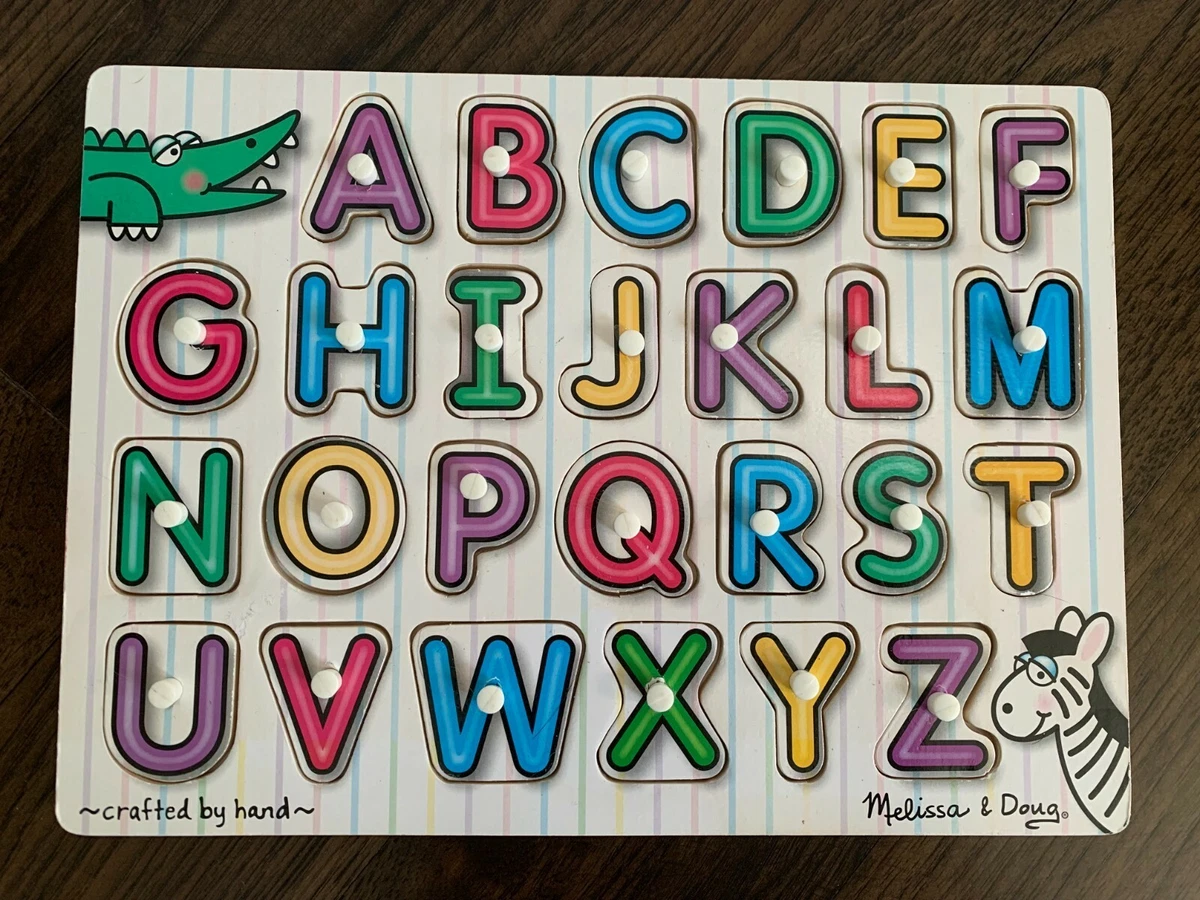 A B C D E F
G H I J K L M
N O P Q R S T
U V W X Y Z
~crafted by hand~ Melissa & Doug®